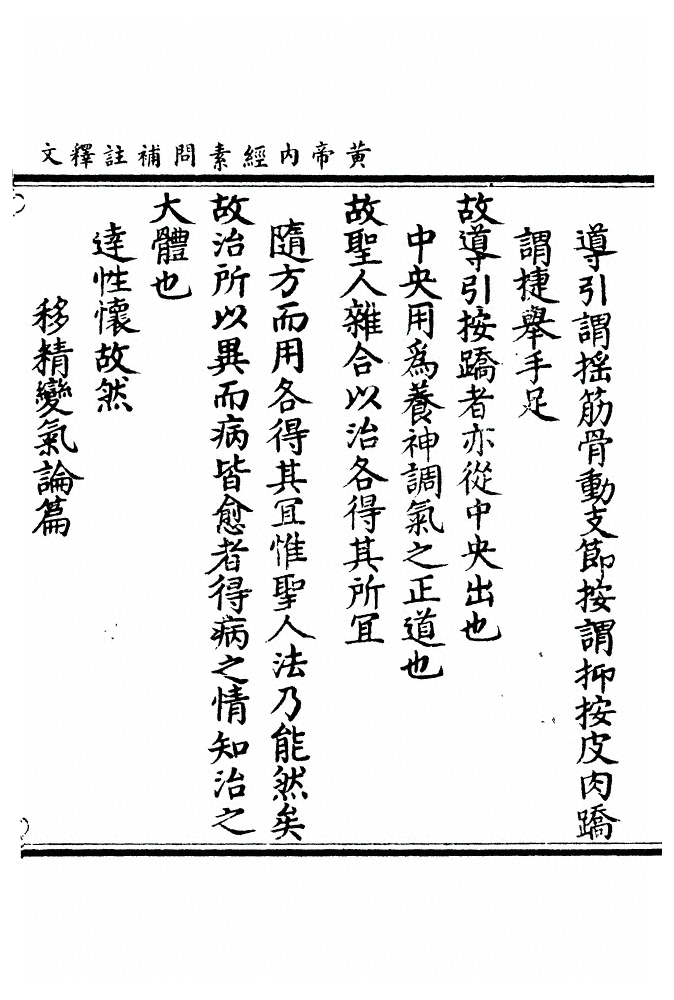 黃帝內經素問補註釋文
導引謂摇筋骨動支節按謂抑按皮肉蹻
謂捷舉手足
故導引按蹻者亦從中央出也
中央用爲養神調氣之正道也
故聖人雜合以治各得其所冝
隨方而用各得其冝惟聖人法乃能然矣
故治所以異而病皆愈者得病之情知治之
大體也
達性懷故然
移精變氣論篇